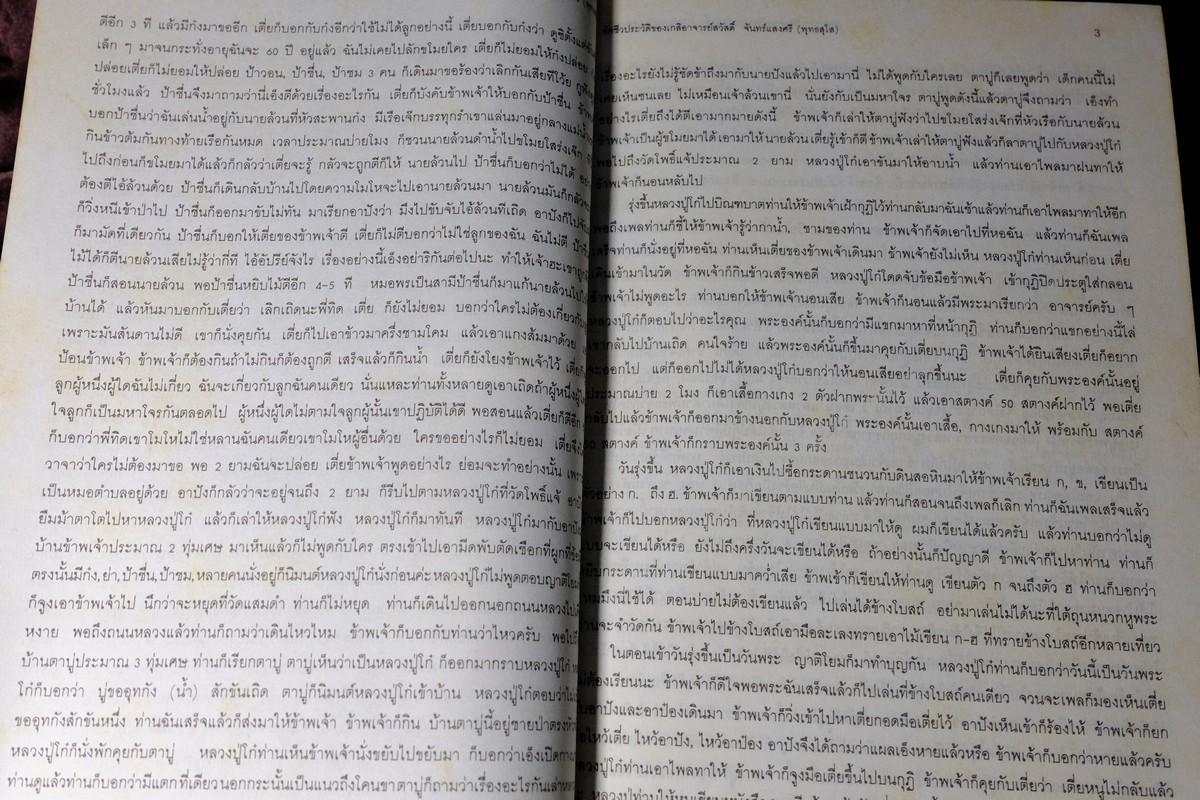 ตีอีก 3 ที แล้วมีก๋งมาขออีก เตี่ยก็บอกกับก๋งอีกว่าใช้ไม่ได้ลูกอย่างนี้ เตี่ยบอกกับก๋งว่า ดูซิตั้งแต่
เล็ก ๆ มาจนกระทั่งอายุฉันจะ 60 ปี อยู่แล้ว ฉันไม่เคยไปลักขโมยใคร เตี่ยก็ไม่ยอมให้ก๋งปล่อย
ปล่อยเตี่ยก็ไม่ยอมให้ปล่อย ป้าวอน, ป้าชื่น, ป้าชม 3 คน ก็เดินมาขอร้องว่าเลิกกันเสียทีไว้ย
ชั่วโมงแล้ว ป้าชื่นจึงมาถามว่านี่เอ็งตีด้วยเรื่องอะไรกัน เตี่ยก็บังคับข้าพเจ้าให้บอกกับป้าชื่น
บอกป้าชื่นว่าฉันเล่นน้ำอยู่กับนายล้วนที่หัวสะพานก๋ง มีเรือเจ๊กบรรทุกรำเขาแล่นมาอยู่กลางแม่น้ำ
กินข้าวต้มกันทางท้ายเรือกันหมด เวลาประมาณบ่ายโมง ก็ชวนนายล้วนดำน้ำไปขโมยโสร่งเจ๊ก
ไปถึงก่อนก็ขโมยมาได้แล้วก็กลัวว่าเตี่ยจะรู้ กลัวจะถูกตีก็ให้ นายล้วนไป ป้าชื่นก็บอกว่าไม่ได้
ต้องตีไอ้ล้วนด้วย ป้าชื่นก็เดินกลับบ้านไปโดยความโมโหจะไปเอานายล้วนมา นายล้วนมันก็กลัว
ก็วิ่งหนีเข้าป่าไป ป้าชื่นก็ออกมาขับไม่ทัน มาเรียกอาปังว่า มึงไปขับจับไอ้ล้วนทีเถิด อาปังก็ไป
ก็มามัดที่เดียวกัน ป้าชื่นก็บอกให้เตี่ยของข้าพเจ้าตี เตี่ยก็ไม่ตีบอกว่าไม่ใช่ลูกของฉัน ฉันไม่ตี
ไม้ได้ก็ตีนายล้วนเสียไม่รู้ว่ากี่ที ไอ้อัปรีย์จังไร เรื่องอย่างนี้เอ็งอย่าริกันต่อไปนะ ทำให้เจ้าฮะเขา
ป้าชื่นก็สอนนายล้วน พอป้าชื่นหยิบไม้ตีอีก 4-5 ที หมอพรเป็นสามีป้าชื่นก็มาแก้นายล้วนไป
บ้านได้ แล้วหันมาบอกกับเตี่ยว่า เลิกเถิดนะพี่ทิด เตี่ย ก็ยังไม่ยอม บอกว่าใครไม่ต้องเกี่ยว
เพราะมันสันดานไม่ดี เขาก็นั่งคุยกัน เตี่ยก็ไปเอาข้าวมาครึ่งชามโคม แล้วเอาแกงส้มมาด้วย
ป้อนข้าพเจ้า ข้าพเจ้าก็ต้องกินถ้าไม่กินก็ต้องถูกตี เสร็จแล้วก็กินน้ำ เตี่ยก็ยังโยงข้าพเจ้าไว้
ลูกผู้หนึ่งผู้ใดฉันไม่เกี่ยว ฉันจะเกี่ยวกับลูกฉันคนเดียว นั่นแหละท่านทั้งหลายดูเอาเถิดถ้าผู้หนึ่ง
ใจลูกก็เป็นมหาโจรกันตลอดไป ผู้หนึ่งผู้ใดไม่ตามใจลูกผู้นั้นเขาปฏิบัติได้ดี พอสอนแล้วเตี่ยก็ตีอีก
ก็บอกว่าพี่ทิดเขาโมโหไม่ใช่หลานฉันคนเดียวเขาโมโหผู้อื่นด้วย ใครขออย่างไรก็ไม่ยอม
วาจาว่าใครไม่ต้องมาขอ พอ 2 ยามฉันจะปล่อย เตี่ยข้าพเจ้าพูดอย่างไร ย่อมจะทำอย่างนั้น
เป็นหมอตำบลอยู่ด้วย อาปังก็กลัวว่าจะอยู่จนถึง 2 ยาม ก็รีบไปตามหลวงปู่โก๋ที่วัดโพธิ์แจ้
ยืมม้าตาโตไปหาหลวงปู่โก๋ แล้วก็เล่าให้หลวงปู่โก๋ฟัง หลวงปู่โก๋ก็มาทันที หลวงปู่โก๋มากับ
บ้านข้าพเจ้าประมาณ 2 ทุ่มเศษ มาเห็นแล้วก็ไม่พูดกับใคร ตรงเข้าไปเอามีดพับตัดเชือกที่ผูก
ตรงนั้นมีก๋ง,ย่า,ป้าชื่น,ป้าชม,หลายคนนั่งอยู่ก็นิมนต์หลวงปู่โก๋นั่งก่อนค่ะหลวงปู่โก๋ไม่พูดตอบญาติโยม
ก็จูงเอาข้าพเจ้าไป นึกว่าจะหยุดที่วัดแสมดำ ท่านก็ไม่หยุด ท่านก็เดินไปออกนอกถนนหลวงไป
หงาย พอถึงถนนหลวงแล้วท่านก็ถามว่าเดินไหวไหม ข้าพเจ้าก็บอกกับท่านว่าไหวครับ พอ
บ้านตาปูประมาณ 3 ทุ่มเศษ ท่านก็เรียกตาปู ตาปูเห็นว่าเป็นหลวงปู่โก๋ ก็ออกมากราบหลวงปู่โก๋
โก๋ก็บอกว่า ปูขออุทกัง (น้ำ) สักขันเถิด ตาปูก็นิมนต์หลวงปู่โก๋เข้าบ้าน หลวงปู่โก๋ตอบว่า
ขออุทกังสักขันหนึ่ง ท่านฉันเสร็จแล้วก็ส่งมาให้ข้าพเจ้า ข้าพเจ้าก็กิน บ้านตาปูนี้อยู่ชายป่าตรง
หลวงปู่โก๋ก็นั่งพักคุยกับตาปู หลวงปู่โก๋ท่านเห็นข้าพเจ้านั่งขยับไปขยับมา ก็บอกว่าเอ็งเปิด
ท่านดูแล้วท่านก็บอกว่ามีแตกที่เดียวนอกกระนั้นเป็นแนวถึงโคนขาตาปูก็ถามว่าเรื่องอะไรกัน
ชีวประวัติของเกสิอาจารย์สวัสดิ์ จันทร์แสงศรี (พุทธสุโส) 3
เรื่องอะไรยังไม่รู้ชัดข้าถึงมากับนายปังแล้วไปเอามานี่ ไม่ได้พูดกับใครเลย ตาปูก็เลยพูดว่า เด็กคนนี้ไม่
เคยเห็นซนเลย ไม่เหมือนเจ้าล้วนเขานี่ นั่นยังกับเป็นมหาโจร ตาปูพูดดังนี้แล้วตาปูจึงถามว่า เอ็งทำ
อย่างไรเตี่ยถึงได้ตีเอามากมายดังนี้ ข้าพเจ้าก็เล่าให้ตาปูฟังว่าไปขโมยโสร่งเจ๊กที่หัวเรือกับนายล้วน
ข้าพเจ้าเป็นผู้ขโมยมาได้เอามาให้นายล้วน เตี่ยรู้เข้าก็ตีข้าพเจ้าเล่าให้ตาปูฟังแล้วก็ลาตาปูไปกับหลวงปู่โก๋
พอไปถึงวัดโพธิ์แจ้ประมาณ 2 ยาม หลวงปู่โก๋เอาขันมาให้อาบน้ำ แล้วท่านเอาไพลมาฝนทาให้
ข้าพเจ้าก็นอนหลับไป
รุ่งขึ้นหลวงปู่โก๋ไปบิณฑบาตท่านให้ข้าพเจ้าเฝ้ากุฏิไว้ท่านกลับมาฉันเช้าแล้วท่านก็เอาไพลมาทาให้อีก
พอถึงเพลท่านก็ชี้ให้ข้าพเจ้ารู้ว่ากาน้ำ, ชามของท่าน ข้าพเจ้าก็จัดเอาไปที่หอฉัน แล้วท่านก็ฉันเพล
เสร็จท่านก็นั่งอยู่ที่หอฉัน ท่านเห็นเตี่ยของข้าพเจ้าเดินมา ข้าพเจ้ายังไม่เห็น หลวงปู่โก๋ท่านเห็นก่อน เตี่ย
เดินเข้ามาในวัด ข้าพเจ้าก็กินข้าวเสร็จพอดี หลวงปู่โก๋โดดจับข้อมือข้าพเจ้า เข้ากุฏิปิดประตูใส่กลอน
ข้าพเจ้าไม่พูดอะไร ท่านบอกให้ข้าพเจ้านอนเสีย ข้าพเจ้าก็นอนแล้วมีพระมาเรียกว่า อาจารย์ครับ ๆ
หลวงปู่โก๋ก็ตอบไปว่าอะไรคุณ พระองค์นั้นก็บอกว่ามีแขกมาหาที่หน้ากุฏิ ท่านก็บอกว่าแขกอย่างนี้ไล่
เขากลับไปบ้านเถิด คนใจร้าย แล้วพระองค์นั้นก็ขึ้นมาคุยกับเตี่ยบนกุฏิ ข้าพเจ้าได้ยินเสียงเตี่ยก็อยาก
จะออกไป แต่ก็ออกไปไม่ได้หลวงปู่โก๋บอกว่าให้นอนเสียอย่าลุกขึ้นนะ เตี่ยก็คุยกับพระองค์นั้นอยู่
ประมาณบ่าย 2 โมง ก็เอาเสื้อกางเกง 2 ตัวฝากพระนั้นไว้ แล้วเอาสตางค์ 50 สตางค์ฝากไว้ พอเตี่ย
กลับไปแล้วข้าพเจ้าก็ออกมาข้างนอกกับหลวงปู่โก๋ พระองค์นั้นเอาเสื้อ, กางเกงมาให้ พร้อมกับ สตางค์
50 สตางค์ ข้าพเจ้าก็กราบพระองค์นั้น 3 ครั้ง
วันรุ่งขึ้น หลวงปู่โก๋ก็เอาเงินไปซื้อกระดานชนวนกับดินสอหินมาให้ข้าพเจ้าเรียน ก, ข, เขียนเป็น
ตัวอย่าง ก. ถึง ฮ. ข้าพเจ้าก็มาเขียนตามแบบท่าน แล้วท่านก็สอนจนถึงเพลก็เลิก ท่านก็ฉันเพลเสร็จแล้ว
ข้าพเจ้าก็ไปบอกหลวงปู่โก๋ว่า ที่หลวงปู่โก๋เขียนแบบมาให้ดู ผมก็เขียนได้แล้วครับ แล้วท่านบอกว่าไม่ดู
แบบจะเขียนได้หรือ ยังไม่ถึงครึ่งวันจะเขียนได้หรือ ถ้าอย่างนั้นก็ปัญญาดี ข้าพเจ้าก็ไปหาท่าน ท่านก็
หยิบกระดานที่ท่านเขียนแบบมาคว่ำเสีย ข้าพเจ้าก็เขียนให้ท่านดู เขียนตัว ก จนถึงตัว ฮ ท่านก็บอกว่า
มึงนี่ใช้ได้ ตอนบ่ายไม่ต้องเขียนแล้ว ไปเล่นได้ข้างโบสถ์ อย่ามาเล่นไม่ได้นะที่ใต้ถุนหนวกหูพระ
ท่านจะจำวัดกัน ข้าพเจ้าไปข้างโบสถ์เอามือละเลงทรายเอาไม้เขียน ก-ฮ ที่ทรายข้างโบสถ์อีกหลายเที่ยว
ในตอนเช้าวันรุ่งขึ้นเป็นวันพระ ญาติโยมก็มาทำบุญกัน หลวงปู่โก๋ท่านก็บอกว่าวันนี้เป็นวันพระ
ไม่ต้องเรียนนะ ข้าพเจ้าก็ดีใจพอพระฉันเสร็จแล้วก็ไปเล่นที่ข้างโบสถ์คนเดียว จวนจะเพลก็มองเห็นเตี่ย
กับอาปังและอาป๋องเดินมา ข้าพเจ้าก็วิ่งเข้าไปหาเตี่ยกอดมือเตี่ยไว้ อาปังเห็นเข้าก็ร้องไห้ ข้าพเจ้าก็ยก
มือไหว้เตี่ย ไหว้อาปัง, ไหว้อาป๋อง อาปังจึงได้ถามว่าแผลเอ็งหายแล้วหรือ ข้าพเจ้าก็บอกว่าหายแล้วครับ
หลวงปู่โก๋ท่านเอาไพลทาให้ ข้าพเจ้าก็จูงมือเตี่ยขึ้นไปบนกุฏิ ข้าพเจ้าก็คุยกับเตี่ยว่า เตี่ยหนูไม่กลับแล้ว